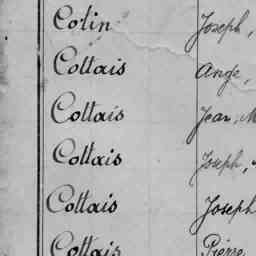 Colin Joseph,
Collais Ange,
Collais Jean, M
Collais Joseph,
Collais Joseph
Collais Pierre